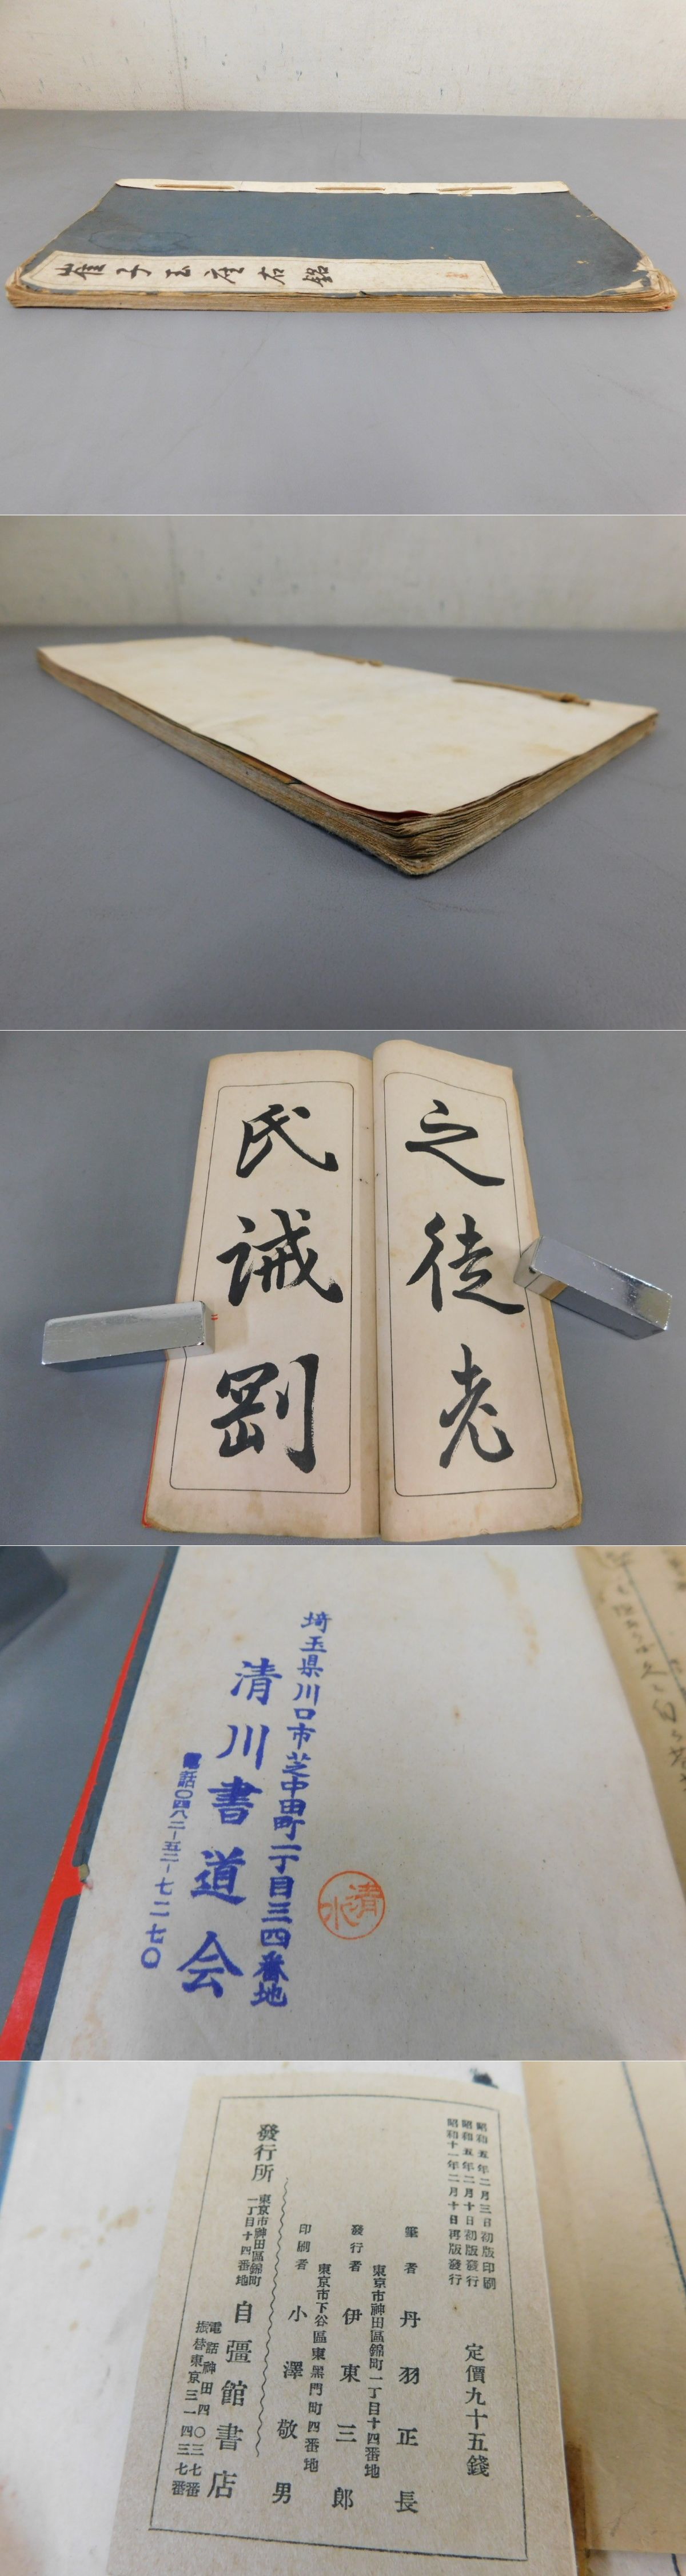 崔子玉座右銘
之徒老
氏誡剛
埼玉県川口市芝中田町一丁目三四番地
清川書道会
電話〇四八二-五二-七二七〇
清水
昭和五年二月三日初版印刷
昭和五年二月十日初版發行
昭和十一年二月十日再版發行
定價九十五錢
筆者 丹羽正長
東京市神田區錦町一丁目十四番地
發行者 伊東三郎
東京市下谷區東黑門町四番地
印刷者 小澤敬男
發行所
東京市神田區錦町
一丁目十四番地
自彊館書店
電話神田四〇三七番
振替東京三一四三七番